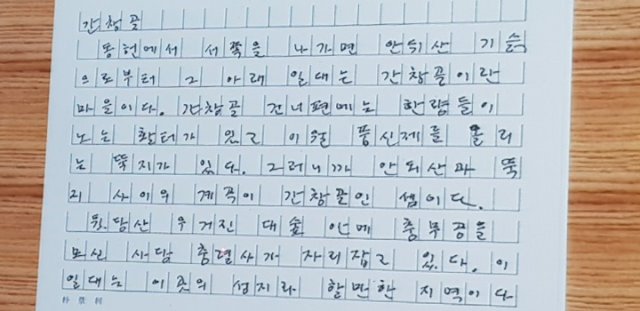 간창골
동헌에서 서쪽을 나가면 안뒤산 기슭
으로부터 그 아래 일대는 간창골이란
마을이다. 간창골 건너편에는 한량들이
노는 활터가 있고 이월 풍신제를 올리
는 뚝지가 있다. 그러니까 안뒤산과 뚝
지 사이의 계곡이 간창골인 셈이다.
뒷당산 우거진 대숲 안에 충무공을
모신 사당 충렬사가 자리잡고 있다. 이
일대는 이곳의 성지라 할만한 지역이다
朴景利